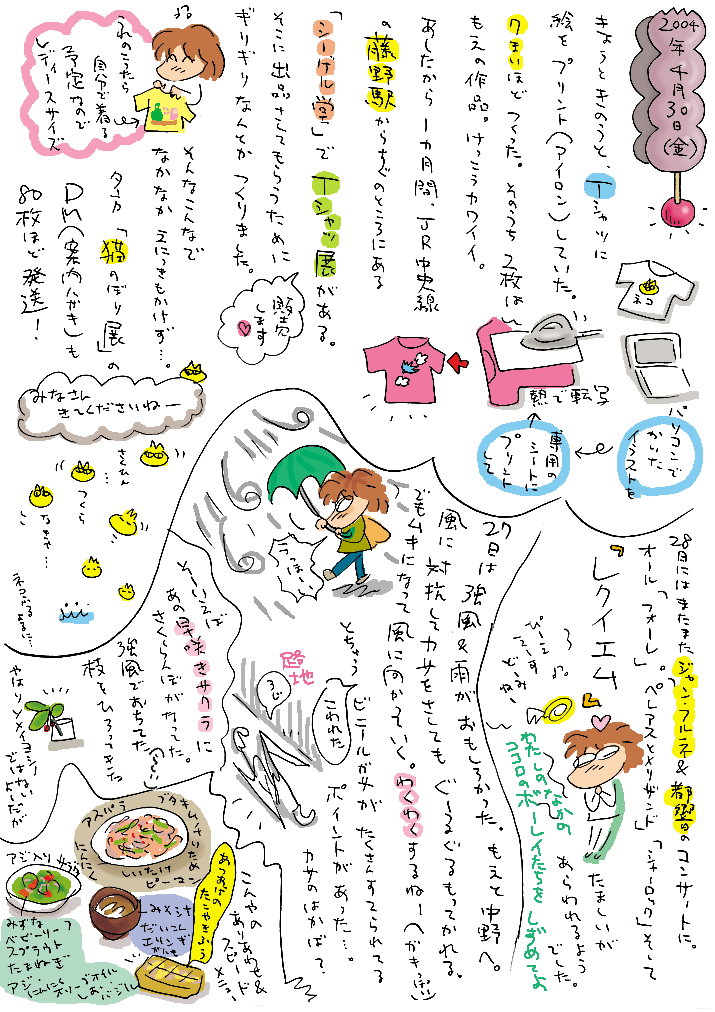 2004年4月30日(金)
きょうときのうと、Tシャツに
絵をプリント(アイロン)していた。
9まいほどつくった。そのうち2枚は
もえの作品。けっこうカワイイ。
あしたから1カ月間、JR中央線
の藤野駅からすぐのところにある
「シーゲル堂」でTシャツ展がある。
そこに出品させてもらうために
ギリギリなんとかつくりました。
販売
します
自分で着る
予定なので
レディースサイズ
そんなこんなで
なかなかえにっきもかけず…。
夕方「猫のぼり展」の
DM(案内ハガキ)も
80枚ほど発送!
ネコ
パソコンで
かいた
イラストを
専用の
シートに
プリント
して
熱で転写
みなさん
きてくださいねー
さくひん
つくら
なきゃ…
28日にはまたまたジャン・フルネ&都響のコンサートに。
オール「フォーレ」。「ペレアスとメリザンド」「シャイロック」そして
『レクイエム』
たましいが
あらわれるよう
でした。
わたしのなかの
ココロのボーレイたちをしずめてよ
27日は強風&雨がおもしろかった。もえと中野へ。
風に対抗してカサをさしてもぐーるぐるもってかれる。
でもムキになって風に向かっていく。わくわくするねー
とちゅう
ビニールガサがたくさんすてられてる
ポイントがあった…。
カサのはかば?
こわれた
路地
ろじ
そーいえば
あの早咲きサクラに
さくらんぼがなった。
強風でおちてた
枝をひろってきた
やはりソメイヨシノ
ではない
ようだが
こんやの
ありあわせ&
スピード
メニュー
あつあげの
たこやきふう
ブタキムチいため
アスパラ
にんにく
しいたけ
ピーマン
みそ汁
だいこん
エリンギ
みずな
ベビーリーフ
スプラウト
たまねぎ
アジ
にんにく
オリーブオイル
バジル